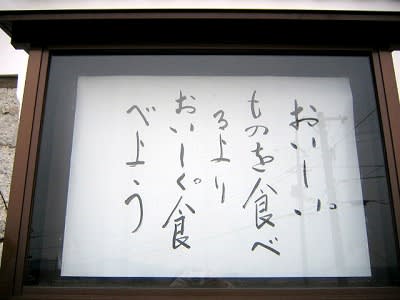 おいしい
ものを食べ
るより
おいしく食
べよう